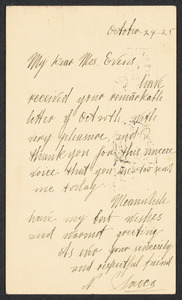 October 24-25
My Dear Mrs. Evans,
I have
received your remarkable
letter of Oct. with
very pleasure, and
thank you for this sincere
that you
me today
Meanwhile
have my best wishes
and warmest greeting
As ever your sincerely
and respectful friend
N.